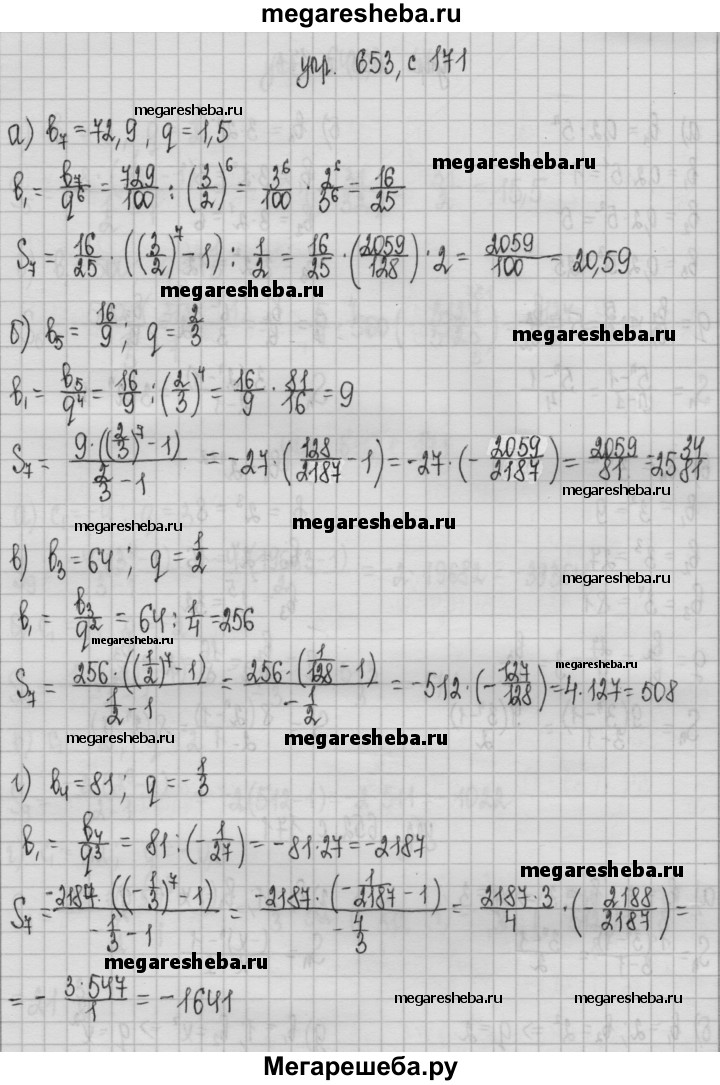 megaresheba.ru
упр. 653, с 171
megaresheba.ru
а) b₇ = 72,9, q = 1,5
megaresheba.ru
b₁ = b₇/q⁶ = 729/100 : (3/2)⁶ = 3⁶/100 · 2⁶/3⁶ = 16/25
S₇ = 16/25 · ((3/2)⁷ - 1) : 1/2 = 16/25 · (2059/128) · 2 = 2059/100 = 20,59
megaresheba.ru
б) b₅ = 16/9; q = 2/3
megaresheba.ru
b₁ = b₅/q⁴ = 16/9 : (2/3)⁴ = 16/9 · 81/16 = 9
S₇ = 9·((2/3)⁷ - 1)/(2/3 - 1) = -27·(128/2187 - 1) = -27·(-2059/2187) = 2059/81 = 25 34/81
megaresheba.ru
megaresheba.ru
megaresheba.ru
в) b₃ = 64; q = 1/2
megaresheba.ru
b₁ = b₃/q² = 64 : 1/4 = 256
megaresheba.ru
megaresheba.ru
S₇ = 256·((1/2)⁷ - 1)/(1/2 - 1) = 256·(1/128 - 1)/(-1/2) = -512·(-127/128) = 4·127 = 508
megaresheba.ru
megaresheba.ru
г) b₄ = 81; q = -1/3
b₁ = b₄/q³ = 81 : (-1/27) = -81·27 = -2187
megaresheba.ru
S₇ = -2187·((-1/3)⁷ - 1)/(-1/3 - 1) = -2187·(-1/2187 - 1)/(-4/3) = 2187·3/4 · (-2188/2187) =
megaresheba.ru
= - 3·547/1 = -1641
megaresheba.ru
megaresheba.ru
Мегарешеба.ру